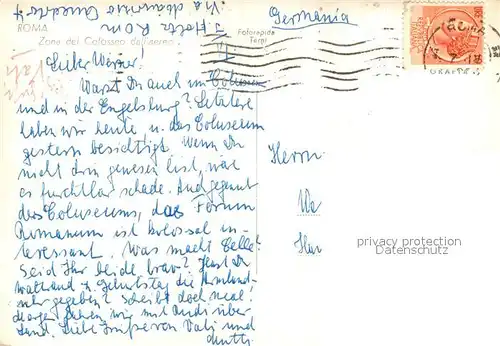 ROMA
Zona del Colosseo dall'aereo
Fotorapida
Terni
Germania
ROMA
Lieber Werner.
Warst Du auch im Coloseum
und in der Engelsburg? Letztere
haben wir heute u. das Coluseum
gestern besichtigt. Wenn Du
nicht drin gewesen bist, wär
es furchtbar schade. Auch gegenüber
des Coluseums, das Forum
Romanum ist kolossal in-
teressant. Was macht Celle?
Seid Ihr beide brav? Hast Du
Waltraud z. Geburtstag die Armband-
uhr gegeben? Schreibt doch mal!
Morgen fahren wir mit Andi über
Land. Liebe Grüsse von Vati und
Mutti.
Herrn
We
Han
privacy protection
Datenschutz